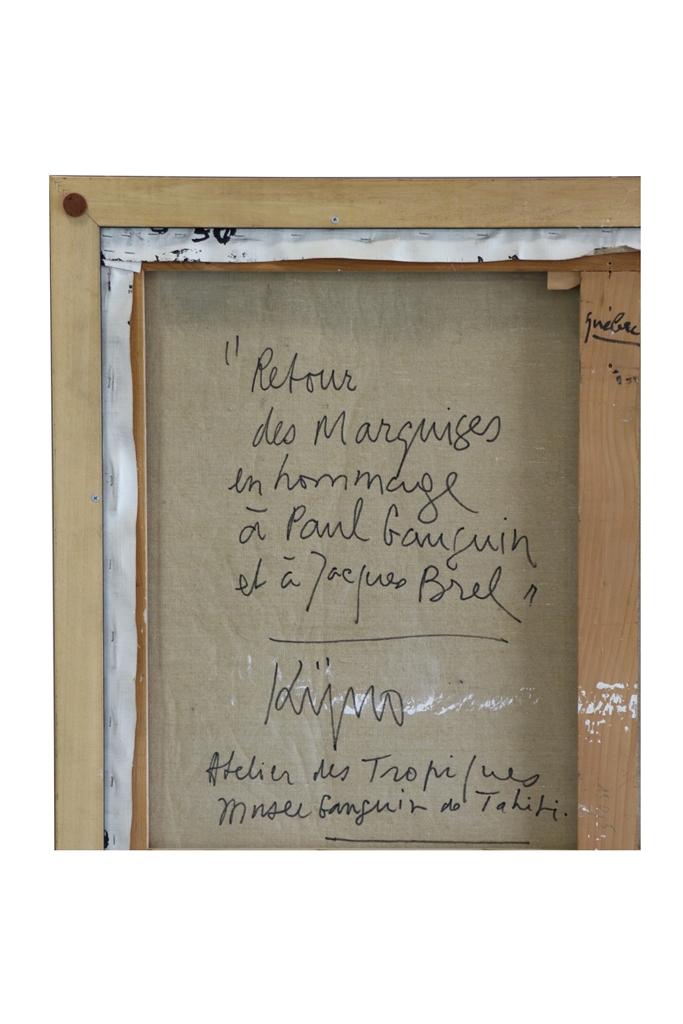 "Retour
des Marquises
en hommage
à Paul Gauguin
et à Jacques Brel"
Kijno
Atelier des Tropiques
Musée Gauguin de Tahiti.
Québec